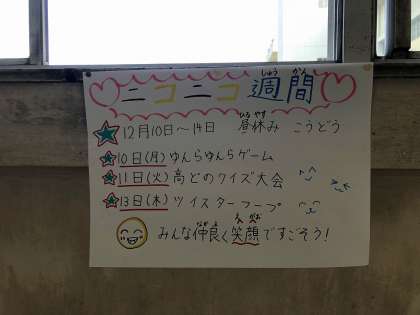 ニコニコ週間
しゅう かん
12月10日〜14日 昼休み こうどう
ひる やす
10日(月) ゆんらゆんらゲーム
11日(火) 高どのクイズ大会
13日(木) ツイスターフープ
みんな仲良く笑顔ですごそう!
なかよ えがお